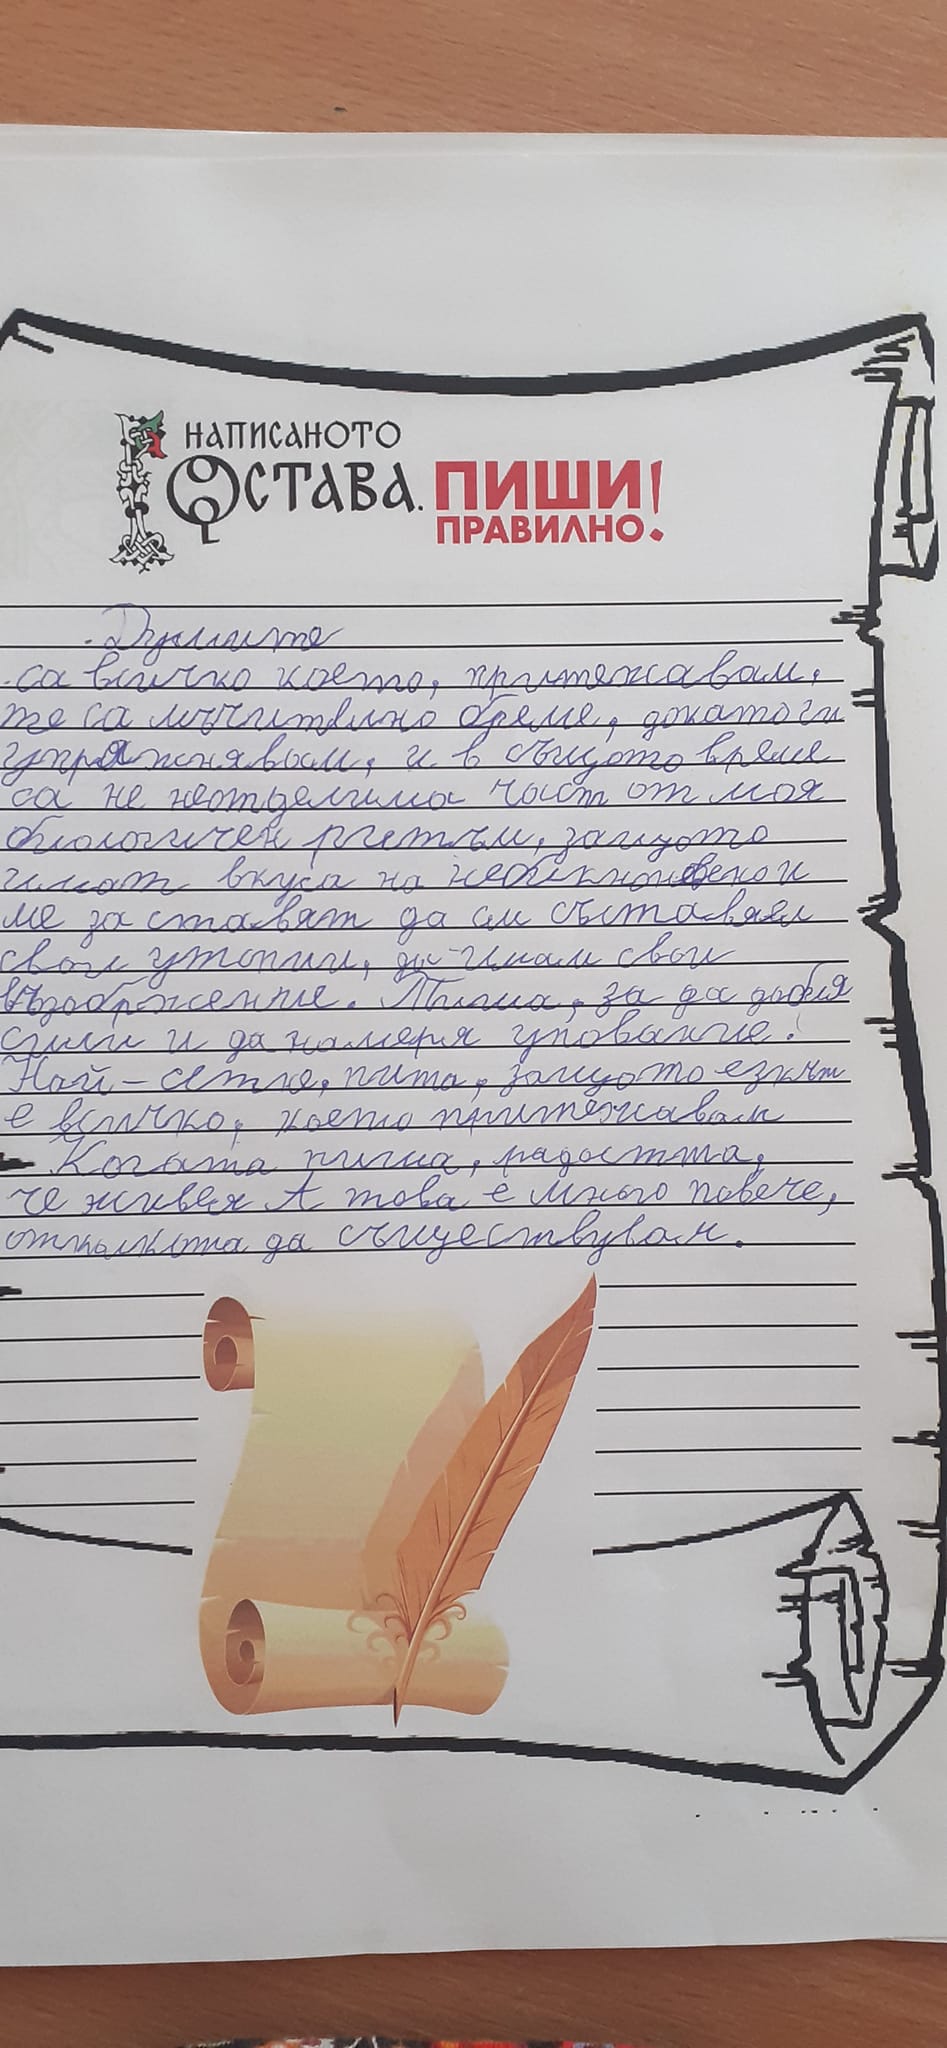 НАПИСАНОТО
ОСТАВА. ПИШИ
ПРАВИЛНО!
Думите
са всичко което, притежавам,
те са мъчително бреме, докато ги
упражнявам, и в същото време
са не неотделима част от моя
биологичен ритъм, защото
имат вкуса на необикновено и
ме за ставят да си съставям
свои утопии, да имам свои
въображение. Пиша, за да добия
сили и да намеря упование.
Най-сетне, пиша, защото езикът
е всичко, което притежавам
Когато пиша, радостта,
че живея А това е много повече,
отколкото да съществувам.